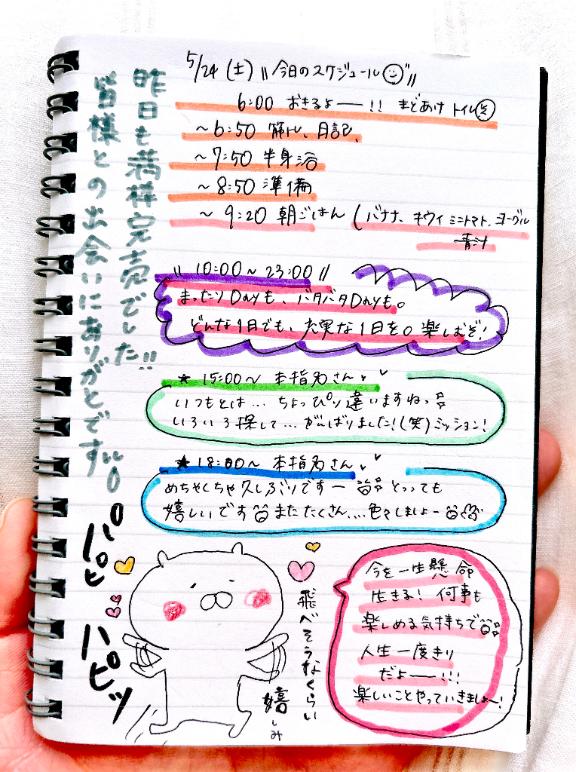 5/24 (土) 〃今日のスケジュール〃
6:00 おきるよー!! まどあけ トイレ
〜6:50 筋トレ、日記、
〜7:50 半身浴
〜8:50 準備
〜9:20 朝ごはん (バナナ、キウイ ミニトマト、ヨーグル
青汁
〃10:00〜23:00〃
まったりDayも、バタバタDayも。
どんな1日でも、充実な1日を。楽しむぞ!
★15:00〜 本指名さん
いつもとは…ちょっぴり違いますねっ
いろいろ探して…がんばりました!(笑)ミッション!
★18:00〜 本指名さん
めちゃくちゃ久しぶりですー とっっても
嬉しいです またたくさん…色々しましょー
昨日も満枠完売でした!!
皆様との出会いにありがとです
ハピハピッ
飛べそうなくらい
嬉しみ
今を一生懸命
生きる!何事も
楽しめる気持ちで
人生一度きり
だよー!!!
楽しいことやっていきましょー!